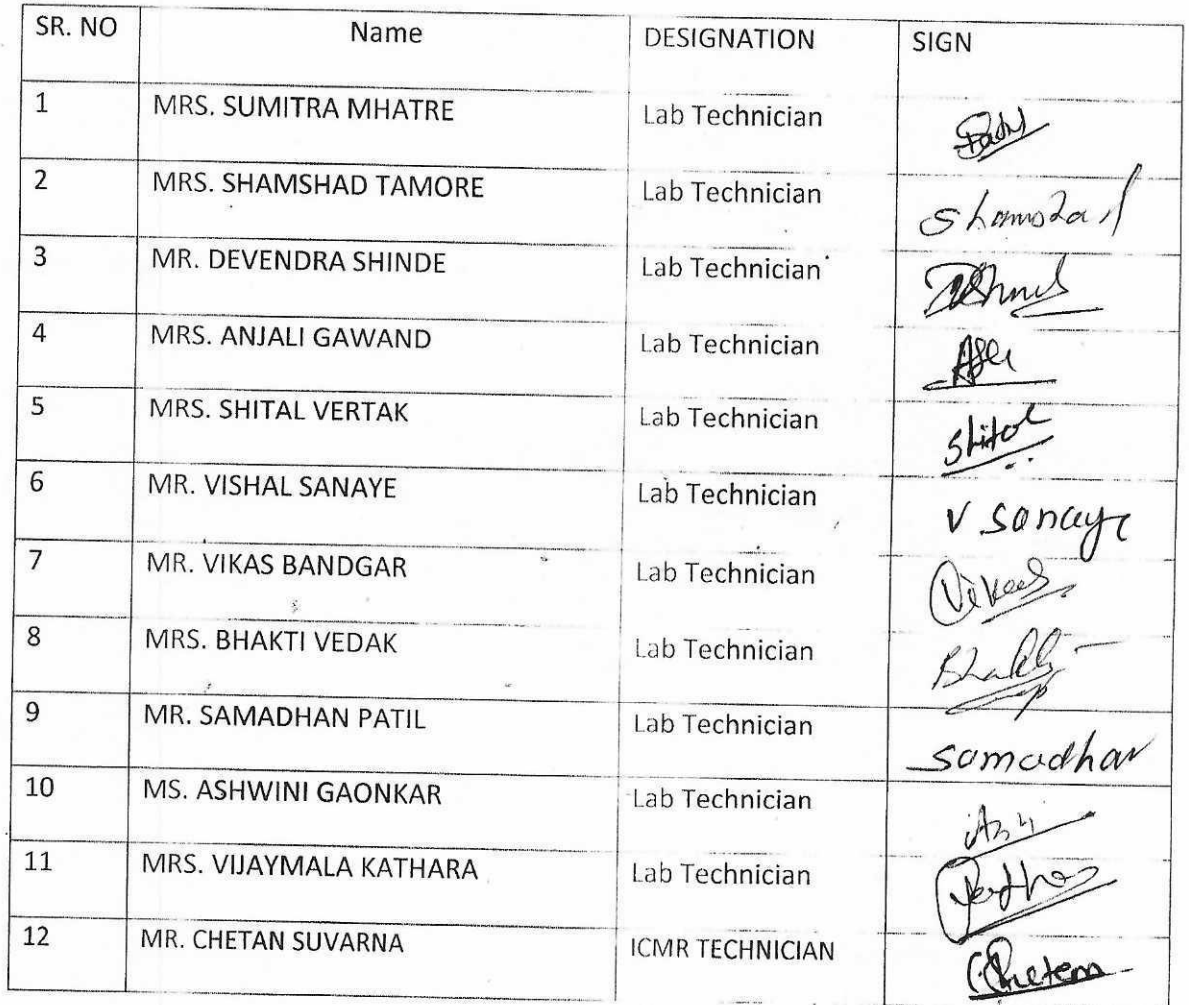 SR. NO Name DESIGNATION SIGN
1 MRS. SUMITRA MHATRE Lab Technician
2 MRS. SHAMSHAD TAMORE Lab Technician Shamshad
3 MR. DEVENDRA SHINDE Lab Technician
4 MRS. ANJALI GAWAND Lab Technician
5 MRS. SHITAL VERTAK Lab Technician Shital
6 MR. VISHAL SANAYE Lab Technician V Sanaye
7 MR. VIKAS BANDGAR Lab Technician Vikas
8 MRS. BHAKTI VEDAK Lab Technician Bhakti
9 MR. SAMADHAN PATIL Lab Technician Samadhan
10 MS. ASHWINI GAONKAR Lab Technician
11 MRS. VIJAYMALA KATHARA Lab Technician
12 MR. CHETAN SUVARNA ICMR TECHNICIAN Chetan